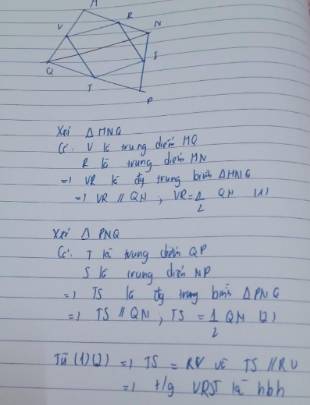 M
R
N
V
S
Q
T
P
Xét Δ MNQ
Có: V là trung điểm MQ
R là trung điểm MN
=) VR là đg trung bình ΔMNQ
=) VR // QN , VR = 1/2 QN (1)
Xét Δ PNQ
Có: T là trung điểm QP
S là trung điểm NP
=) TS là đg trung bình ΔPNQ
=) TS // QN , TS = 1/2 QN (2)
Từ (1)(2) =) TS = RV và TS // RV
=) t/g VRST là hbh